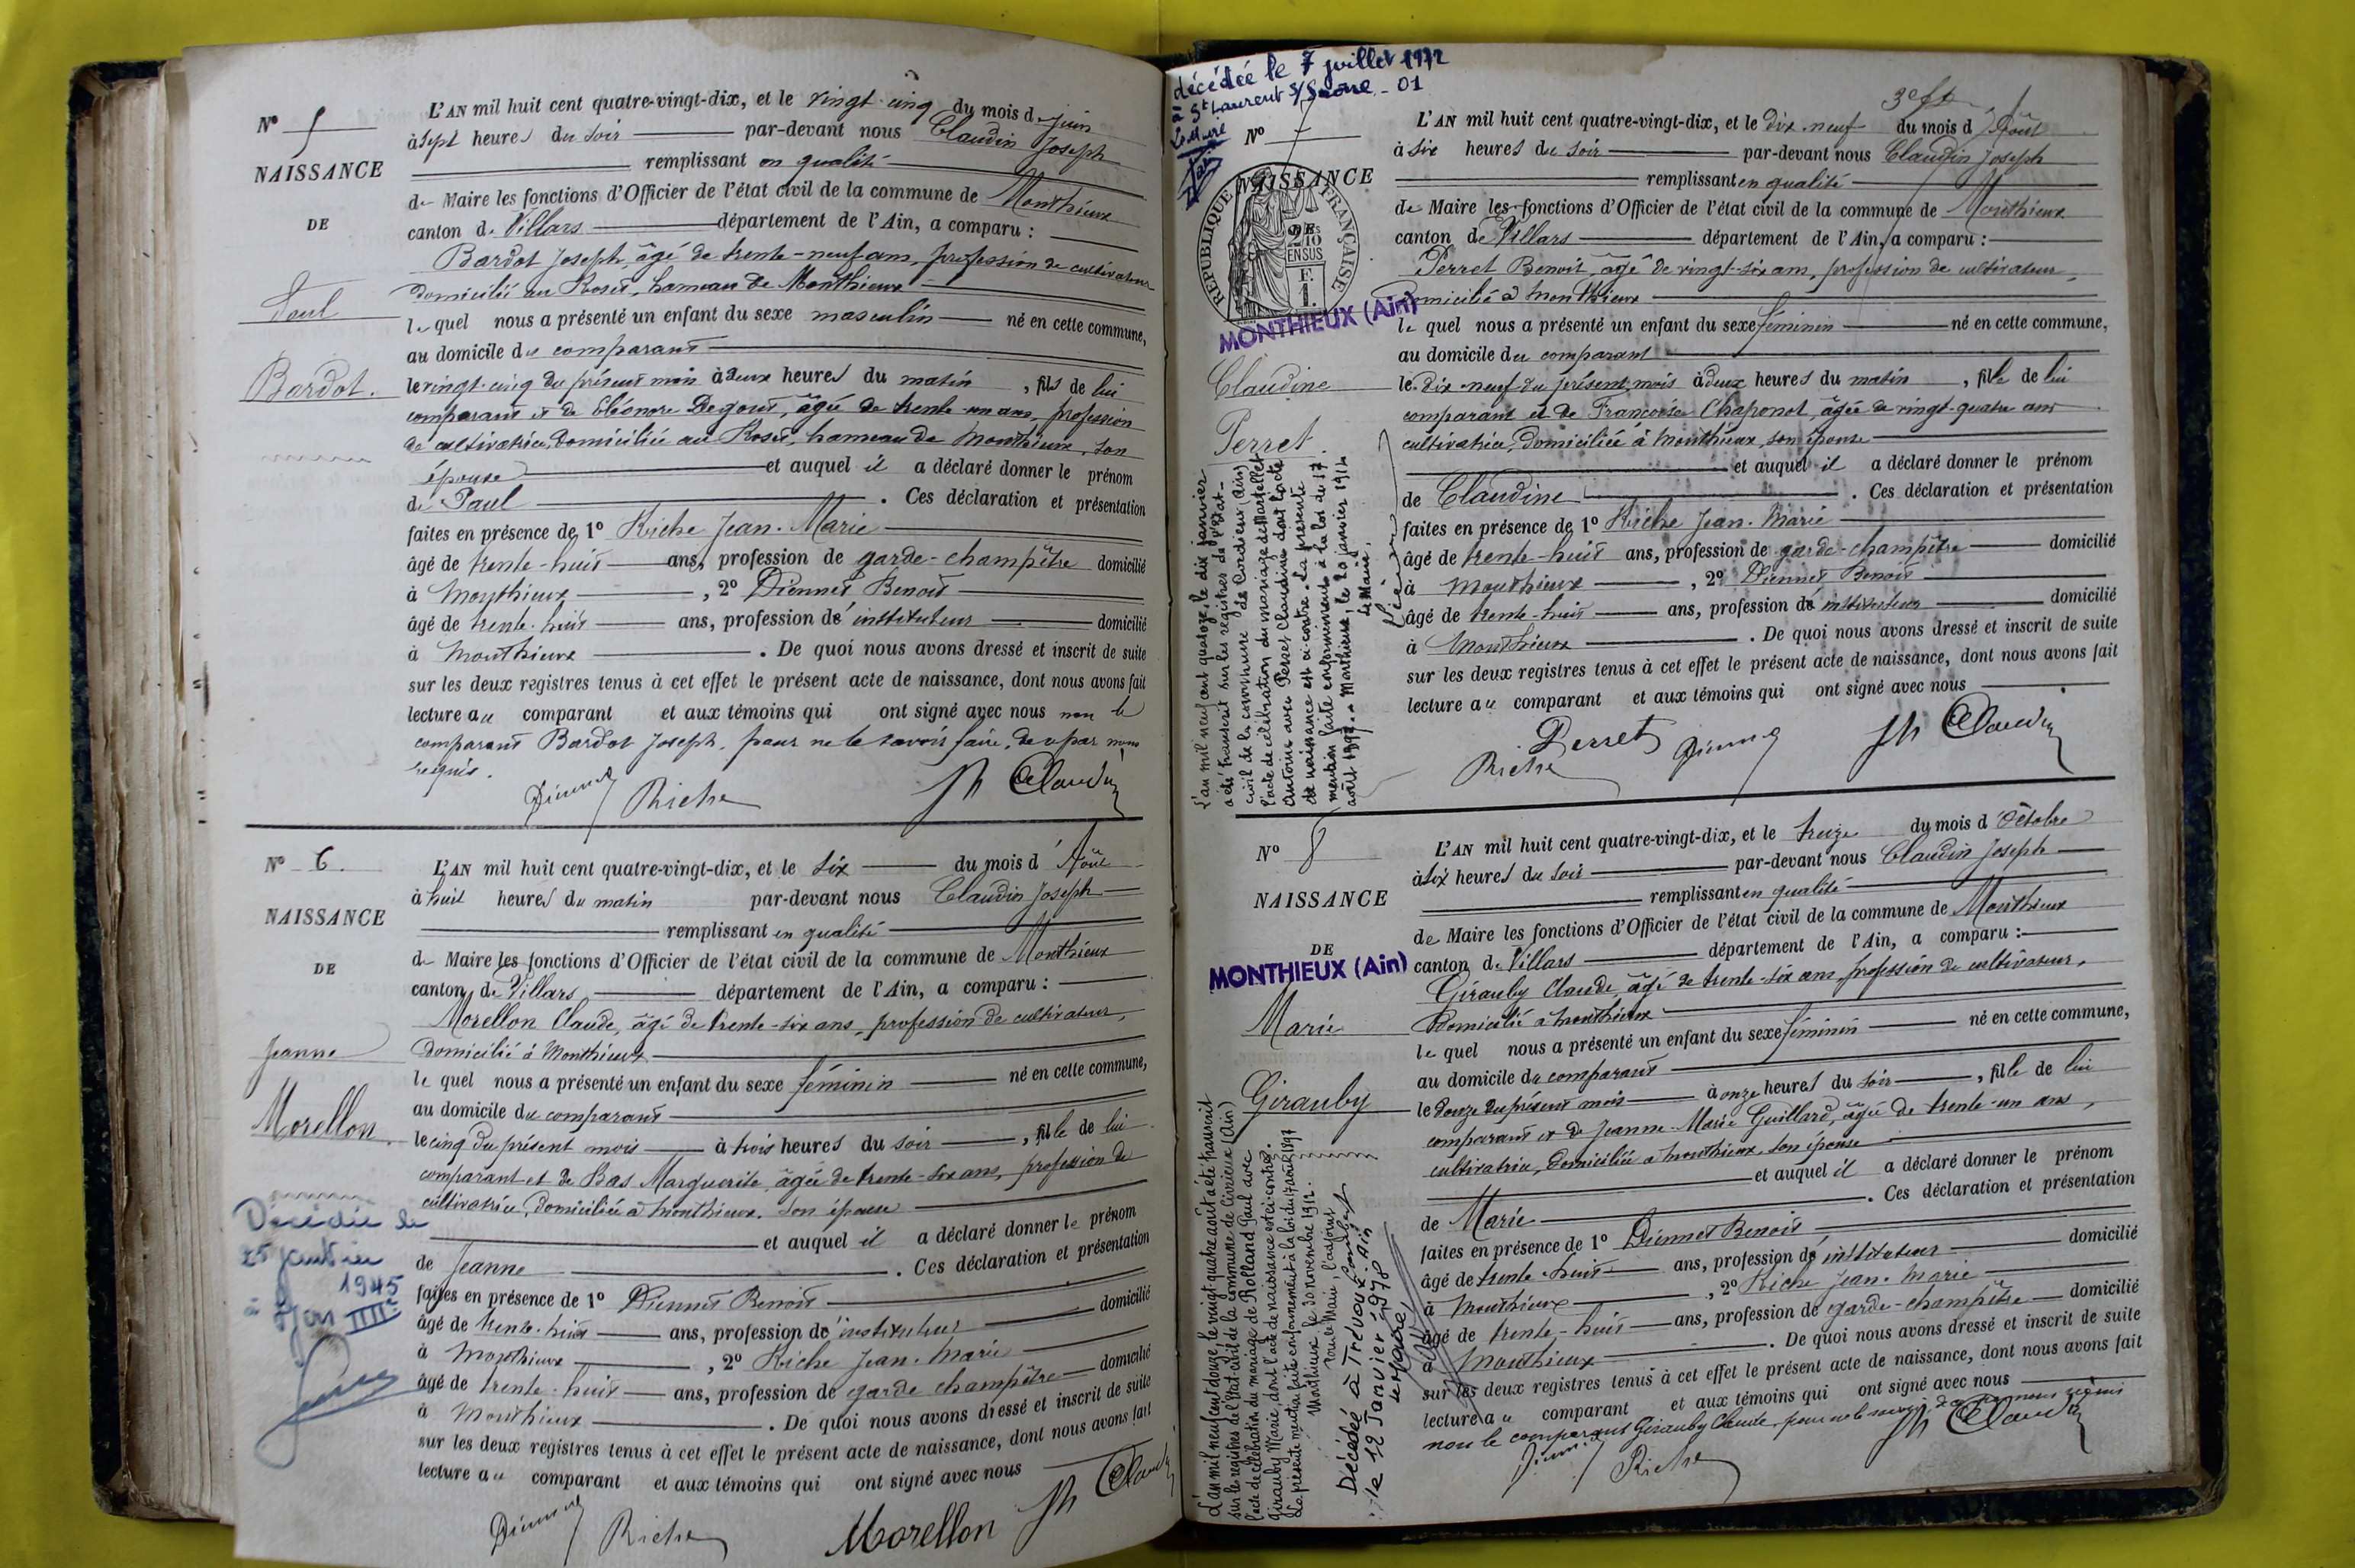 N° 5
NAISSANCE
DE
Paul
Bardot.
L'AN mil huit cent quatre-vingt-dix, et le vingt-cinq du mois de juin
à sept heures du soir par-devant nous Claudin Joseph
remplissant en qualité
de Maire les fonctions d'Officier de l'état civil de la commune de Monthieux
canton de Villars département de l'Ain, a comparu :
Bardot Joseph, âgé de trente-neuf ans, profession de cultivateur
domicilié au Roset, hameau de Monthieux
lequel nous a présenté un enfant du sexe masculin né en cette commune,
au domicile du comparant
le vingt-cinq du présent mois à deux heures du matin, fils de lui
comparant et de Eléonore Degout, âgée de trente-un ans, profession
de cultivatrice, domiciliée au Roset, hameau de Monthieux, son
épouse et auquel il a déclaré donner le prénom
de Paul. Ces déclaration et présentation
faites en présence de 1° Riche Jean-Marie
âgé de trente-huit ans, profession de garde-champêtre domicilié
à Monthieux, 2° Diennet Benoit
âgé de trente-huit ans, profession d'instituteur domicilié
à Monthieux. De quoi nous avons dressé et inscrit de suite
sur les deux registres tenus à cet effet le présent acte de naissance, dont nous avons fait
lecture au comparant et aux témoins qui ont signé avec nous non le
comparant Bardot Joseph, pour ne le savoir faire, de ce par nous
requis.
Diennet Riche Jh Claudin
N° 6.
NAISSANCE
DE
Jeanne
Morellon.
Décédée le
25 janvier
1945
à Lyon IIIIe
L'AN mil huit cent quatre-vingt-dix, et le six du mois d'Août
à huit heures du matin par-devant nous Claudin Joseph
remplissant en qualité
de Maire les fonctions d'Officier de l'état civil de la commune de Monthieux
canton de Villars département de l'Ain, a comparu :
Morellon Claude, âgé de trente-six ans, profession de cultivateur,
domicilié à Monthieux
lequel nous a présenté un enfant du sexe féminin né en cette commune,
au domicile du comparant
le cinq du présent mois à trois heures du soir, fille de lui
comparant et de Bas Marguerite, âgée de trente-six ans, profession de
cultivatrice, domiciliée à Monthieux, son épouse
et auquel il a déclaré donner le prénom
de Jeanne. Ces déclaration et présentation
faites en présence de 1° Diennet Benoit
âgé de trente-huit ans, profession d'instituteur domicilié
à Monthieux, 2° Riche Jean-Marie
âgé de trente-huit ans, profession de garde champêtre domicilié
à Monthieux. De quoi nous avons dressé et inscrit de suite
sur les deux registres tenus à cet effet le présent acte de naissance, dont nous avons fait
lecture au comparant et aux témoins qui ont signé avec nous
Diennet Riche Morellon Jh Claudin
décédée le 7 juillet 1972
à St Laurent s/Saone - 01
Le Maire
N° 7
NAISSANCE
RÉPUBLIQUE FRANÇAISE
2/10 EN SUS
F. 1.
MONTHIEUX (Ain)
Claudine
Perret
L'an mil neuf cent quatorze, le dix janvier
a été transcrit sur les registres de l'Etat-
civil de la commune de Civrieux (Ain)
l'acte de célébration du mariage de Martellet
Antoine avec Perret Claudine dont l'acte
de naissance est ci-contre. La présente
mention faite conformément à la loi du 17
août 1897. Monthieux, le 20 janvier 1914.
Le Maire,
L'AN mil huit cent quatre-vingt-dix, et le dix-neuf du mois d'Août
à six heures du soir par-devant nous Claudin Joseph
remplissant en qualité
de Maire les fonctions d'Officier de l'état civil de la commune de Monthieux
canton de Villars département de l'Ain, a comparu :
Perret Benoit, âgé de vingt-six ans, profession de cultivateur,
domicilié à Monthieux
lequel nous a présenté un enfant du sexe féminin né en cette commune,
au domicile du comparant
le dix-neuf du présent mois à deux heures du matin, fille de lui
comparant et de Françoise Chaponot, âgée de vingt-quatre ans
cultivatrice, domiciliée à Monthieux, son épouse
et auquel il a déclaré donner le prénom
de Claudine. Ces déclaration et présentation
faites en présence de 1° Riche Jean-Marie
âgé de trente-huit ans, profession de garde-champêtre domicilié
à Monthieux, 2° Diennet Benoit
âgé de trente-huit ans, profession d'instituteur domicilié
à Monthieux. De quoi nous avons dressé et inscrit de suite
sur les deux registres tenus à cet effet le présent acte de naissance, dont nous avons fait
lecture au comparant et aux témoins qui ont signé avec nous
Perret Diennet Jh Claudin
Riche
N° 8
NAISSANCE
DE
MONTHIEUX (Ain)
Marie
Girauby
L'an mil neuf cent douze le vingt quatre août a été transcrit
sur les registres de l'état-civil de la commune de Civrieux (Ain)
l'acte de célébration du mariage de Rolland Paul avec
Girauby Marie, dont l'acte de naissance est ci-contre.
La présente mention faite conformément à la loi du 17 août 1897
Monthieux, le 30 novembre 1912.
Pour le Maire, l'adjoint
Décédée à Trévoux Ain
le 12 Janvier 1978
Le Maire,
L'AN mil huit cent quatre-vingt-dix, et le treize du mois d'Octobre
à six heures du soir par-devant nous Claudin Joseph
remplissant en qualité
de Maire les fonctions d'Officier de l'état civil de la commune de Monthieux
canton de Villars département de l'Ain, a comparu :
Girauby Claude, âgé de trente-six ans, profession de cultivateur,
domicilié à Monthieux
lequel nous a présenté un enfant du sexe féminin né en cette commune,
au domicile du comparant
le douze du présent mois à onze heures du soir, fille de lui
comparant et de Jeanne-Marie Guillard, âgée de trente-un ans,
cultivatrice, domiciliée à Monthieux, son épouse
et auquel il a déclaré donner le prénom
de Marie. Ces déclaration et présentation
faites en présence de 1° Diennet Benoit
âgé de trente-huit ans, profession d'instituteur domicilié
à Monthieux, 2° Riche Jean-Marie
âgé de trente-huit ans, profession de garde-champêtre domicilié
à Monthieux. De quoi nous avons dressé et inscrit de suite
sur les deux registres tenus à cet effet le présent acte de naissance, dont nous avons fait
lecture au comparant et aux témoins qui ont signé avec nous
non le comparant Girauby Claude, pour ne le savoir, de ce par nous requis
Diennet Riche Jh Claudin